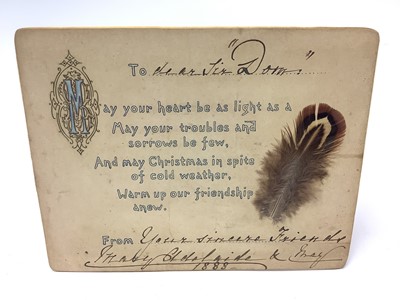 To dear Sir "Dom"
May your heart be as light as a
May your troubles and
sorrows be few,
And may Christmas in spite
of cold weather,
Warm up our friendship
anew.
From Your sincere Friends
Mary Adelaide & May
1888